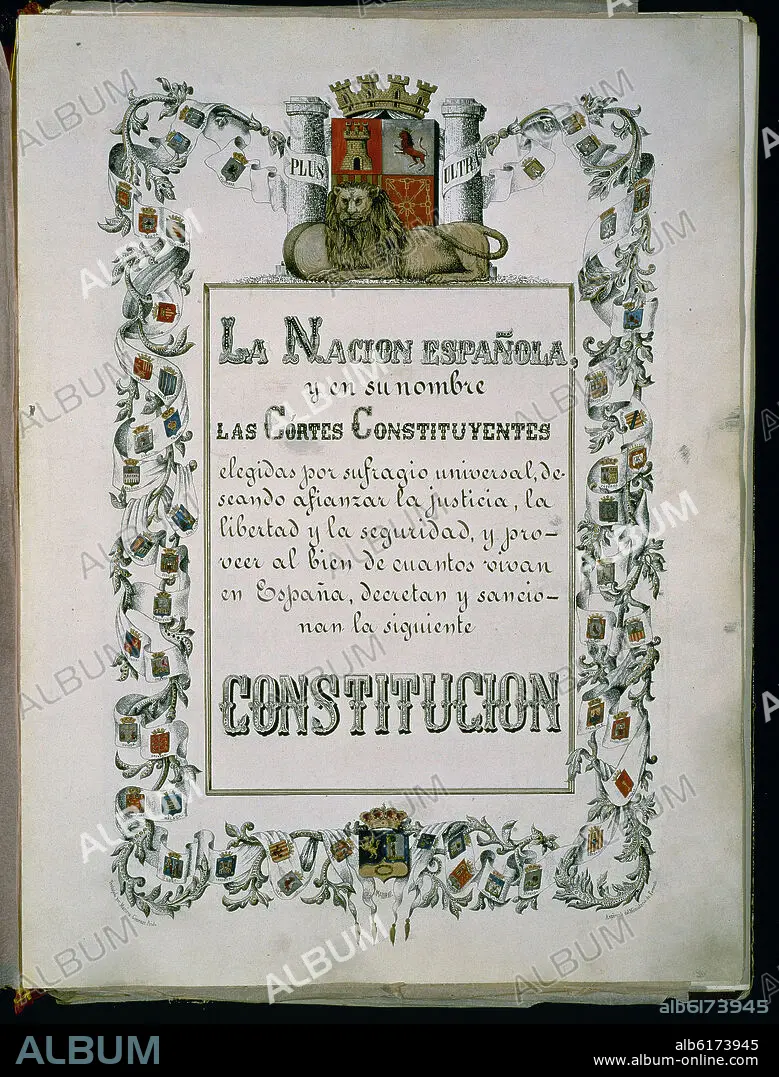 PLUS ULTRA
LA NACION ESPAÑOLA,
y en su nombre
LAS CÓRTES CONSTITUYENTES
elegidas por sufragio universal, de-
seando afianzar la justicia, la
libertad y la seguridad, y pro-
veer al bien de cuantos vivan
en España, decretan y sancio-
nan la siguiente
CONSTITUCION
ALBUM
alb6173945
ALBUM
alb6173945
www.album-online.com